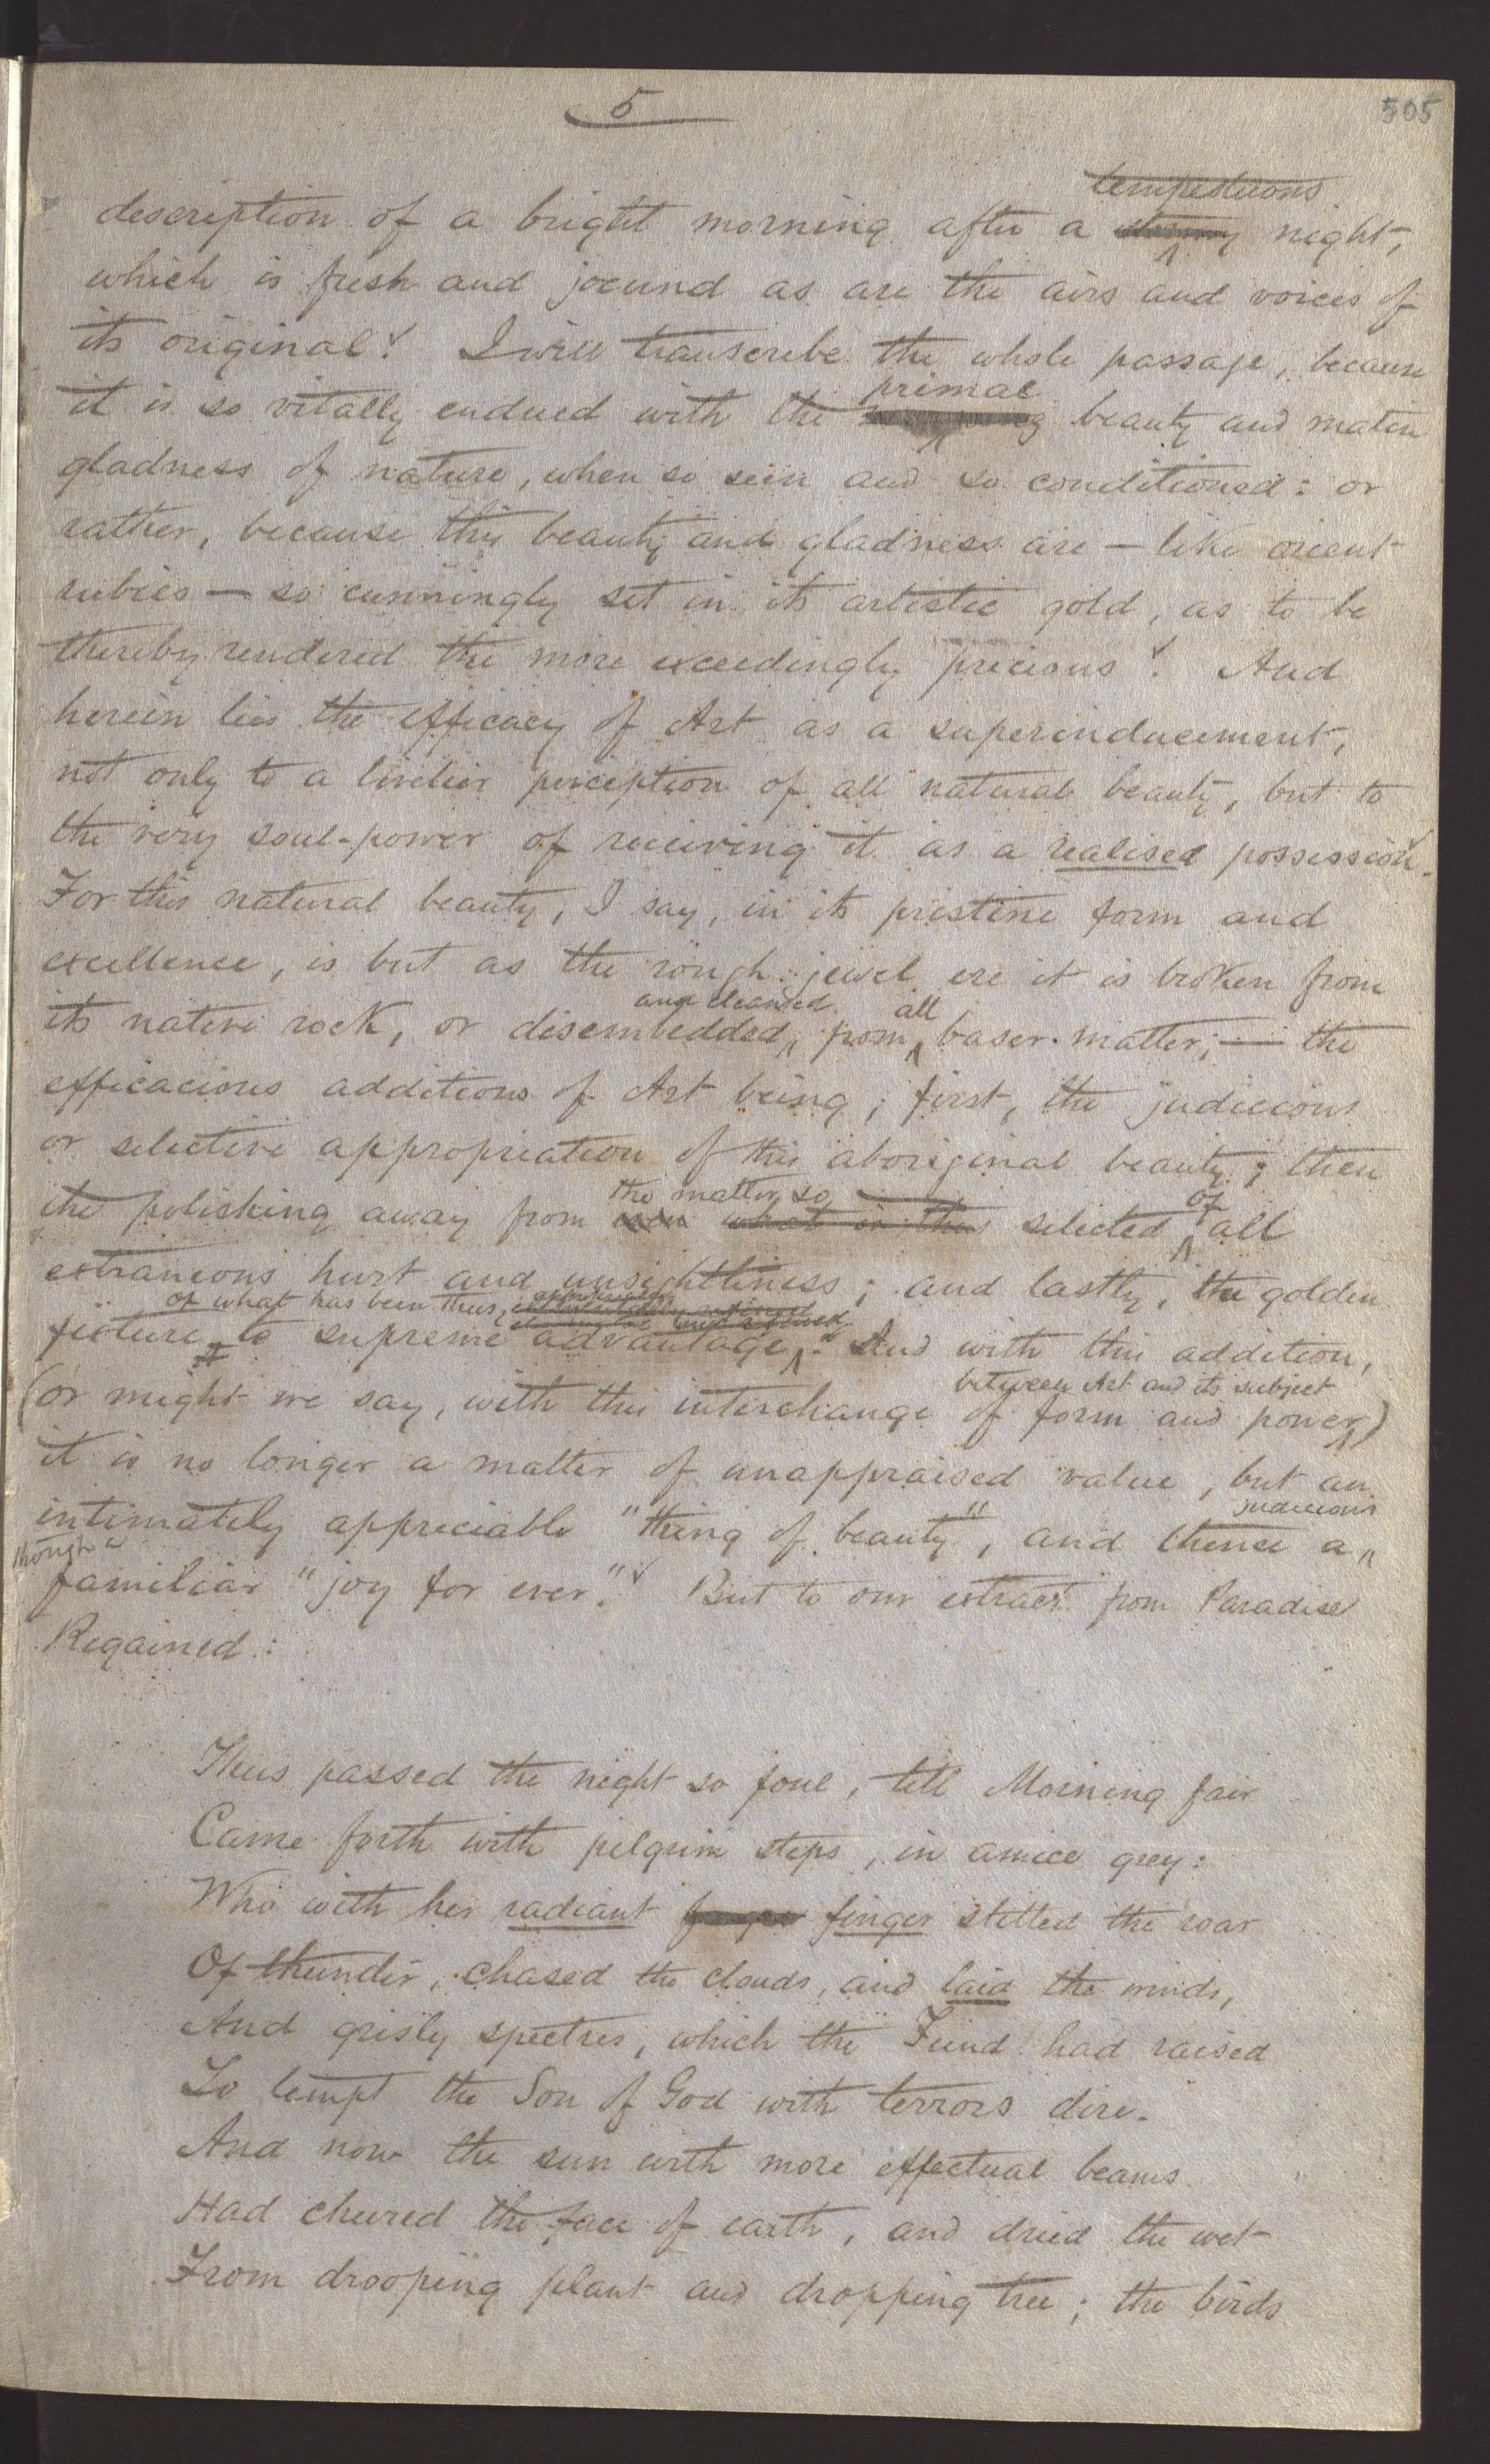 5
505
tempestuous
description of a bright morning after a stormy night,
which is fresh and jocund as are the airs and voices of
its original. I will transcribe the whole passage, because
primal
it is so vitally endued with the beauty and matin
gladness of nature, when so seen and so conditioned: or
rather, because this beauty and gladness are — like orient
rubies — so cunningly set in its artistic gold, as to be
thereby rendered the more exceedingly precious. And
herein lies the efficacy of Art as a superinducement,
not only to a livelier perception of all natural beauty, but to
the very soul-power of receiving it as a realised possession.
For this natural beauty, I say, in its pristine form and
excellence, is but as the rough jewel ere it is broken from
and cleansed all
its native rock, or disembedded, from baser matter; — the
efficacious additions of Art being, first, the judicious
or selective appropriation of this aboriginal beauty; then
the matter so of
the polishing away from what is thus selected all
extraneous hurt and unsightliness; and lastly, the golden
of what has been thus,
fixture to supreme advantage. And with this addition,
between Art and its subject
(or might we say, with this interchange of form and power,)
it is no longer a matter of unappraised value, but an
judicious
intimately appreciable "thing of beauty", and thence a
though a
familiar "joy for ever." But to our extract from Paradise
Regained:
Thus passed the night so foul, till Morning fair
Came forth with pilgrim steps, in amice grey:
Who with her radiant finger stilled the roar
Of thunder, chased the clouds, and laid the winds,
And grisly spectres, which the Fiend had raised
To tempt the Son of God with terrors dire.
And now the sun with more effectual beams
Had cheered the face of earth, and dried the wet
From drooping plant and dropping tree; the birds